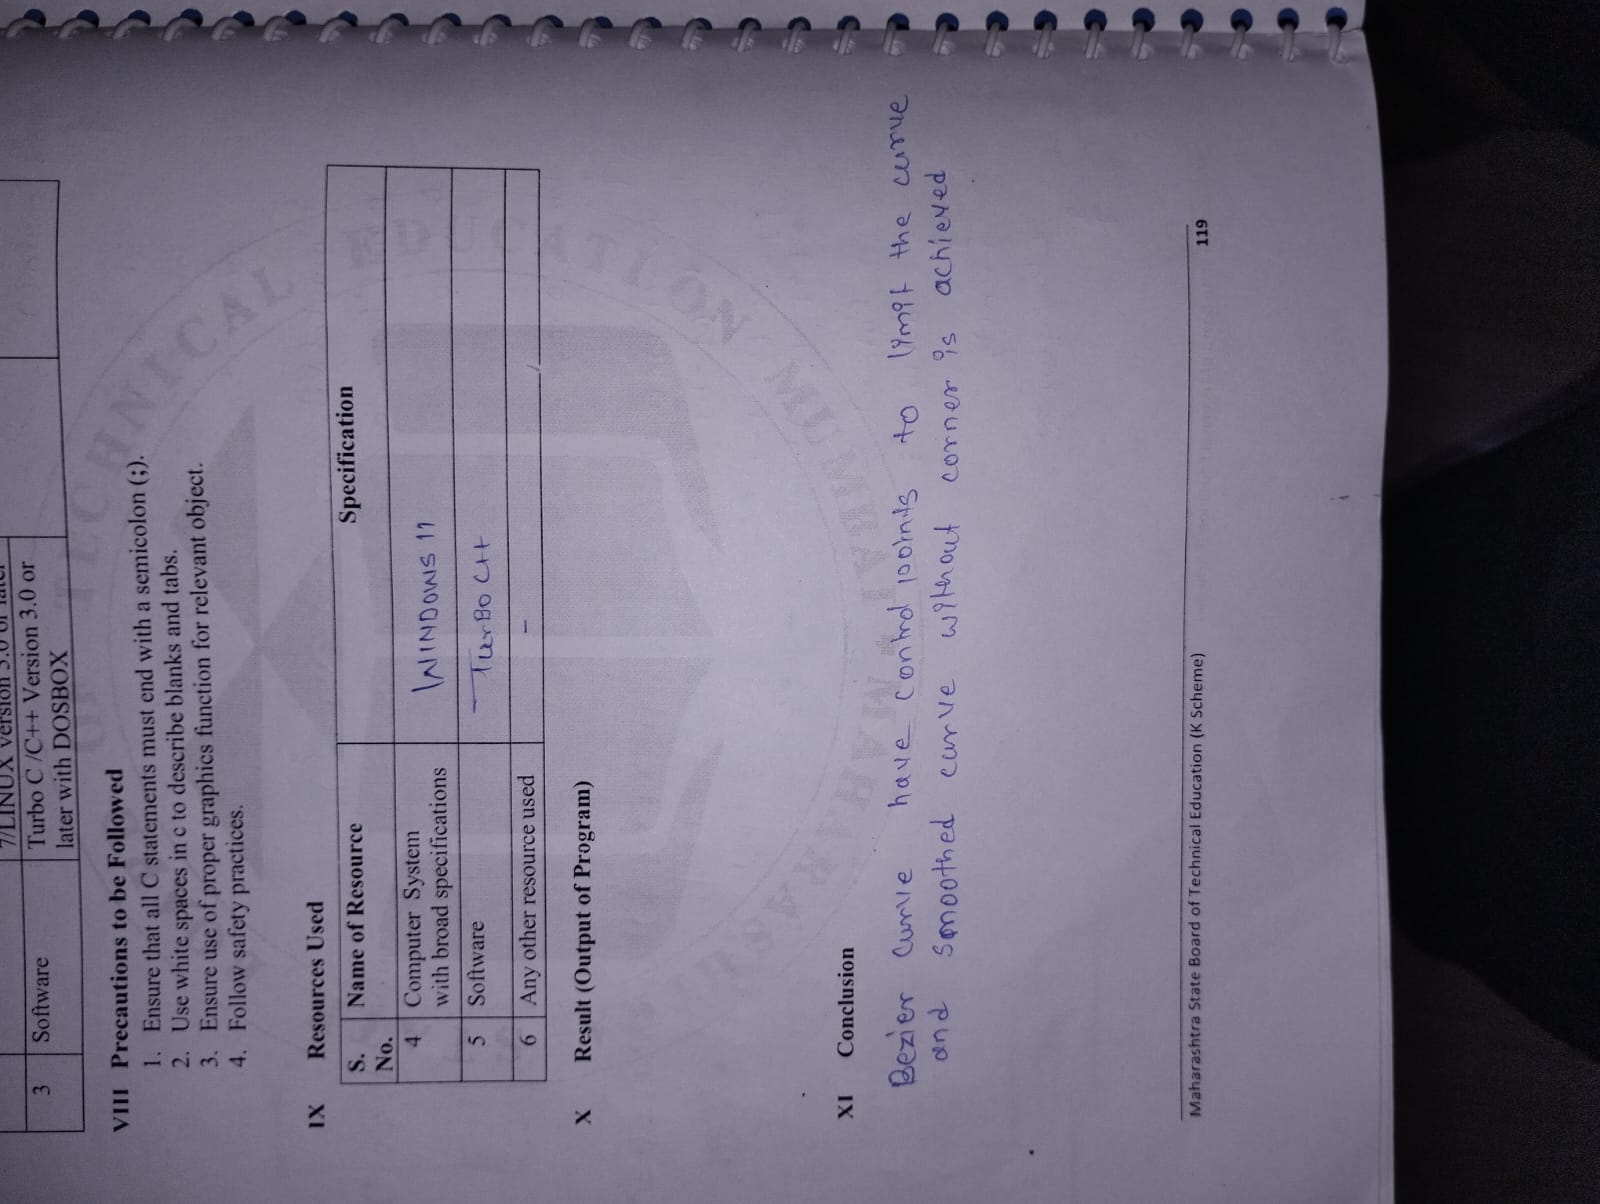 7/LINUX version 5.0 or later
3 Software Turbo C /C++ Version 3.0 or
later with DOSBOX
VIII Precautions to be Followed
1. Ensure that all C statements must end with a semicolon (;).
2. Use white spaces in c to describe blanks and tabs.
3. Ensure use of proper graphics function for relevant object.
4. Follow safety practices.
IX Resources Used
S. Name of Resource Specification
No.
4 Computer System WINDOWS 11
with broad specifications
5 Software TurBO C++
6 Any other resource used -
X Result (Output of Program)
XI Conclusion
Bezier curve have control points to limit the curve
and smoothed curve without corner is achieved
Maharashtra State Board of Technical Education (K Scheme) 119
TECHNICAL EDUCATION MUMBAI
MAHARASHTRA